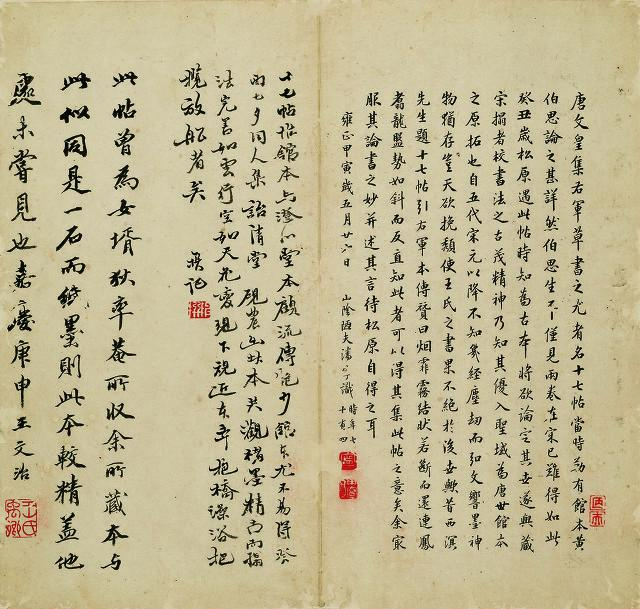 唐文皇集右軍草書之尤者名十七帖當時勒有館本黃
伯思論之甚詳然伯思生平僅見兩卷在宋已難得如此
癸丑歲松原遇此帖時知為古本將欲論定其世遂與藏
宋搨者校書法之古茂精神乃知其優入聖域為唐世館本
之原拓也自五代宋元以降不知幾經塵劫而弘文響墨神
物猶存豈天欲挽頹使王氏之書果不絕於後世歟昔西溟
先生題十七帖引右軍本傳贊曰烟霏霧結狀若斷而還連鳳
翥龍盤勢如斜而反直知此者可以得其集此帖之意矣余家
服其論書之妙并述其言待松原自得之耳
雍正甲寅歲五月廿六日 山陰 夫 識 時年七十有四
十七帖推館本與澄心堂本 流傳 少館本尤不易得癸
丙七夕同人集詒清堂 農出此本共觀楮墨精 而搨
法完善如雲行空如天光變現下視近本 抱橋澡浴把
纜放船者矣 記
此帖曾為女壻狄率菴所收余所藏本與
此似同是一石而紙墨則此本較精蓋他
處未嘗見也嘉慶庚申王文治